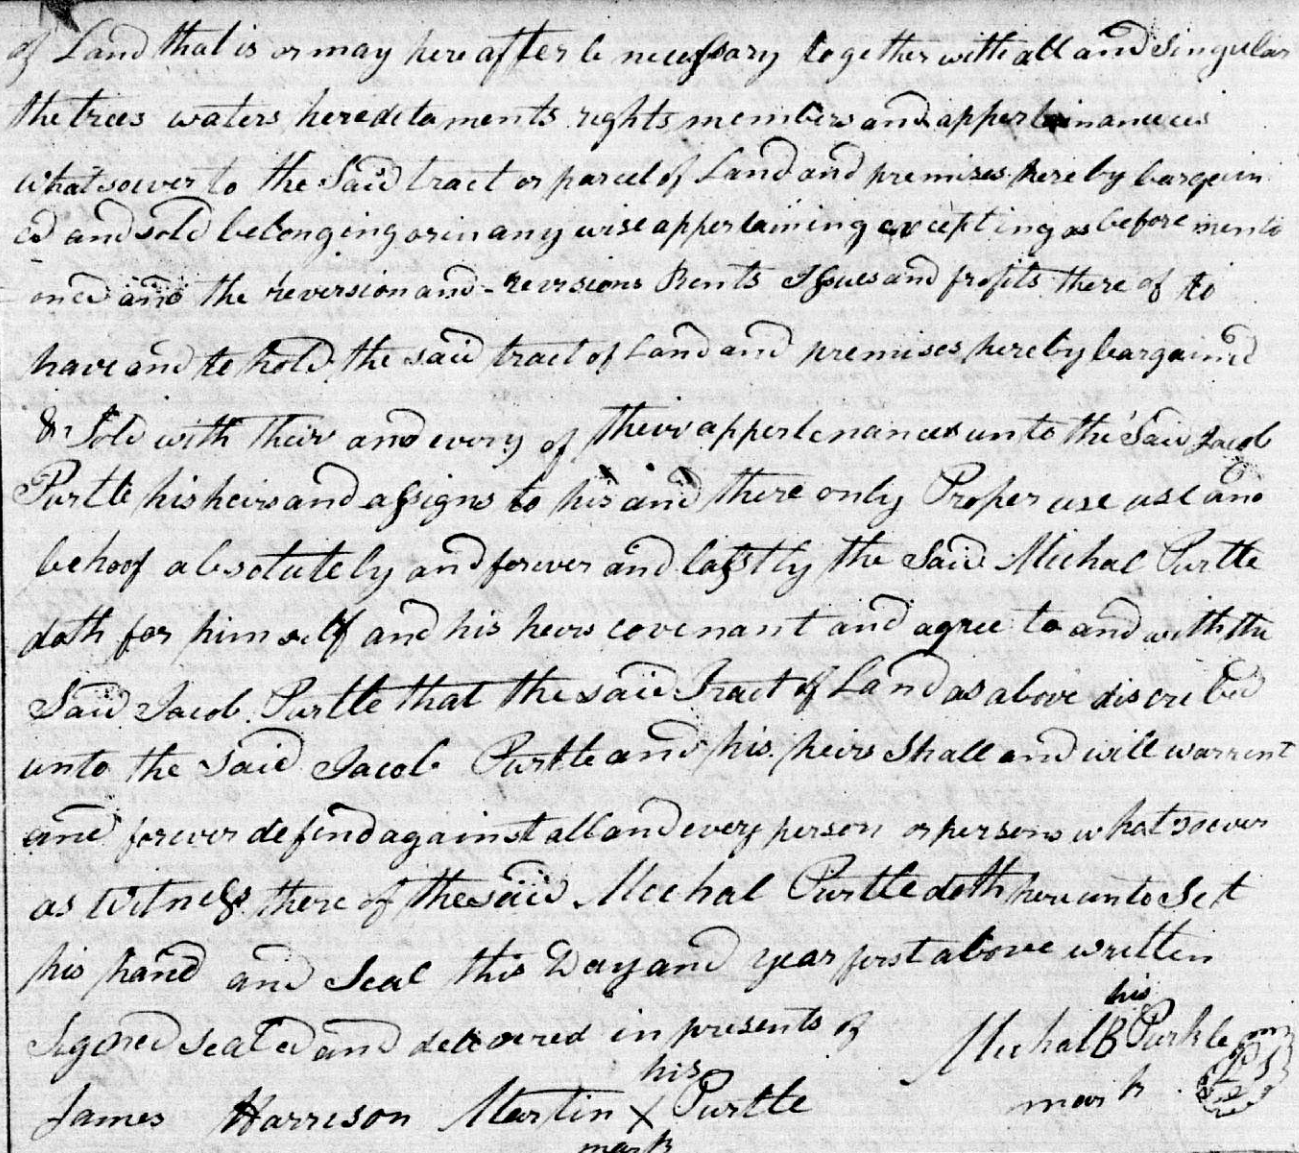 of Land that is or may here after be necessary together with all and Singular
the trees waters hereditaments rights members and appertainances
whatsoever to the Said tract or parcel of Land and premises hereby bargain
ed and sold belonging or in any wise appertaining excepting as before menti
oned and the reversion and reversions Rents Issues and profits there of to
have and to hold the said tract of Land and premises hereby bargained
& Sold with their and every of their appertenances unto the Said Jacob
Purtle his heirs and assigns to his and there only Proper use use and
behoof absolutely and forever and lastly the Said Michal Purtle
doth for himself and his heirs covenant and agree to and with the
Said Jacob Purtle that the said Tract of Land as above discribed
unto the Said Jacob Purtle and his heirs Shall and will warrent
and forever defend against all and every person or persons whatsoever
as Witness there of the said Michal Purtle doth hereunto Set
his hand and Seal this Day and year first above written
Signed sealed and delivered in presents of
his
Michal B Purkle
mark
his
James Harrison Martin X Purtle
mark